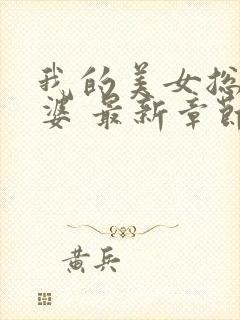 我的美女总
婆 最新章节
黄兵